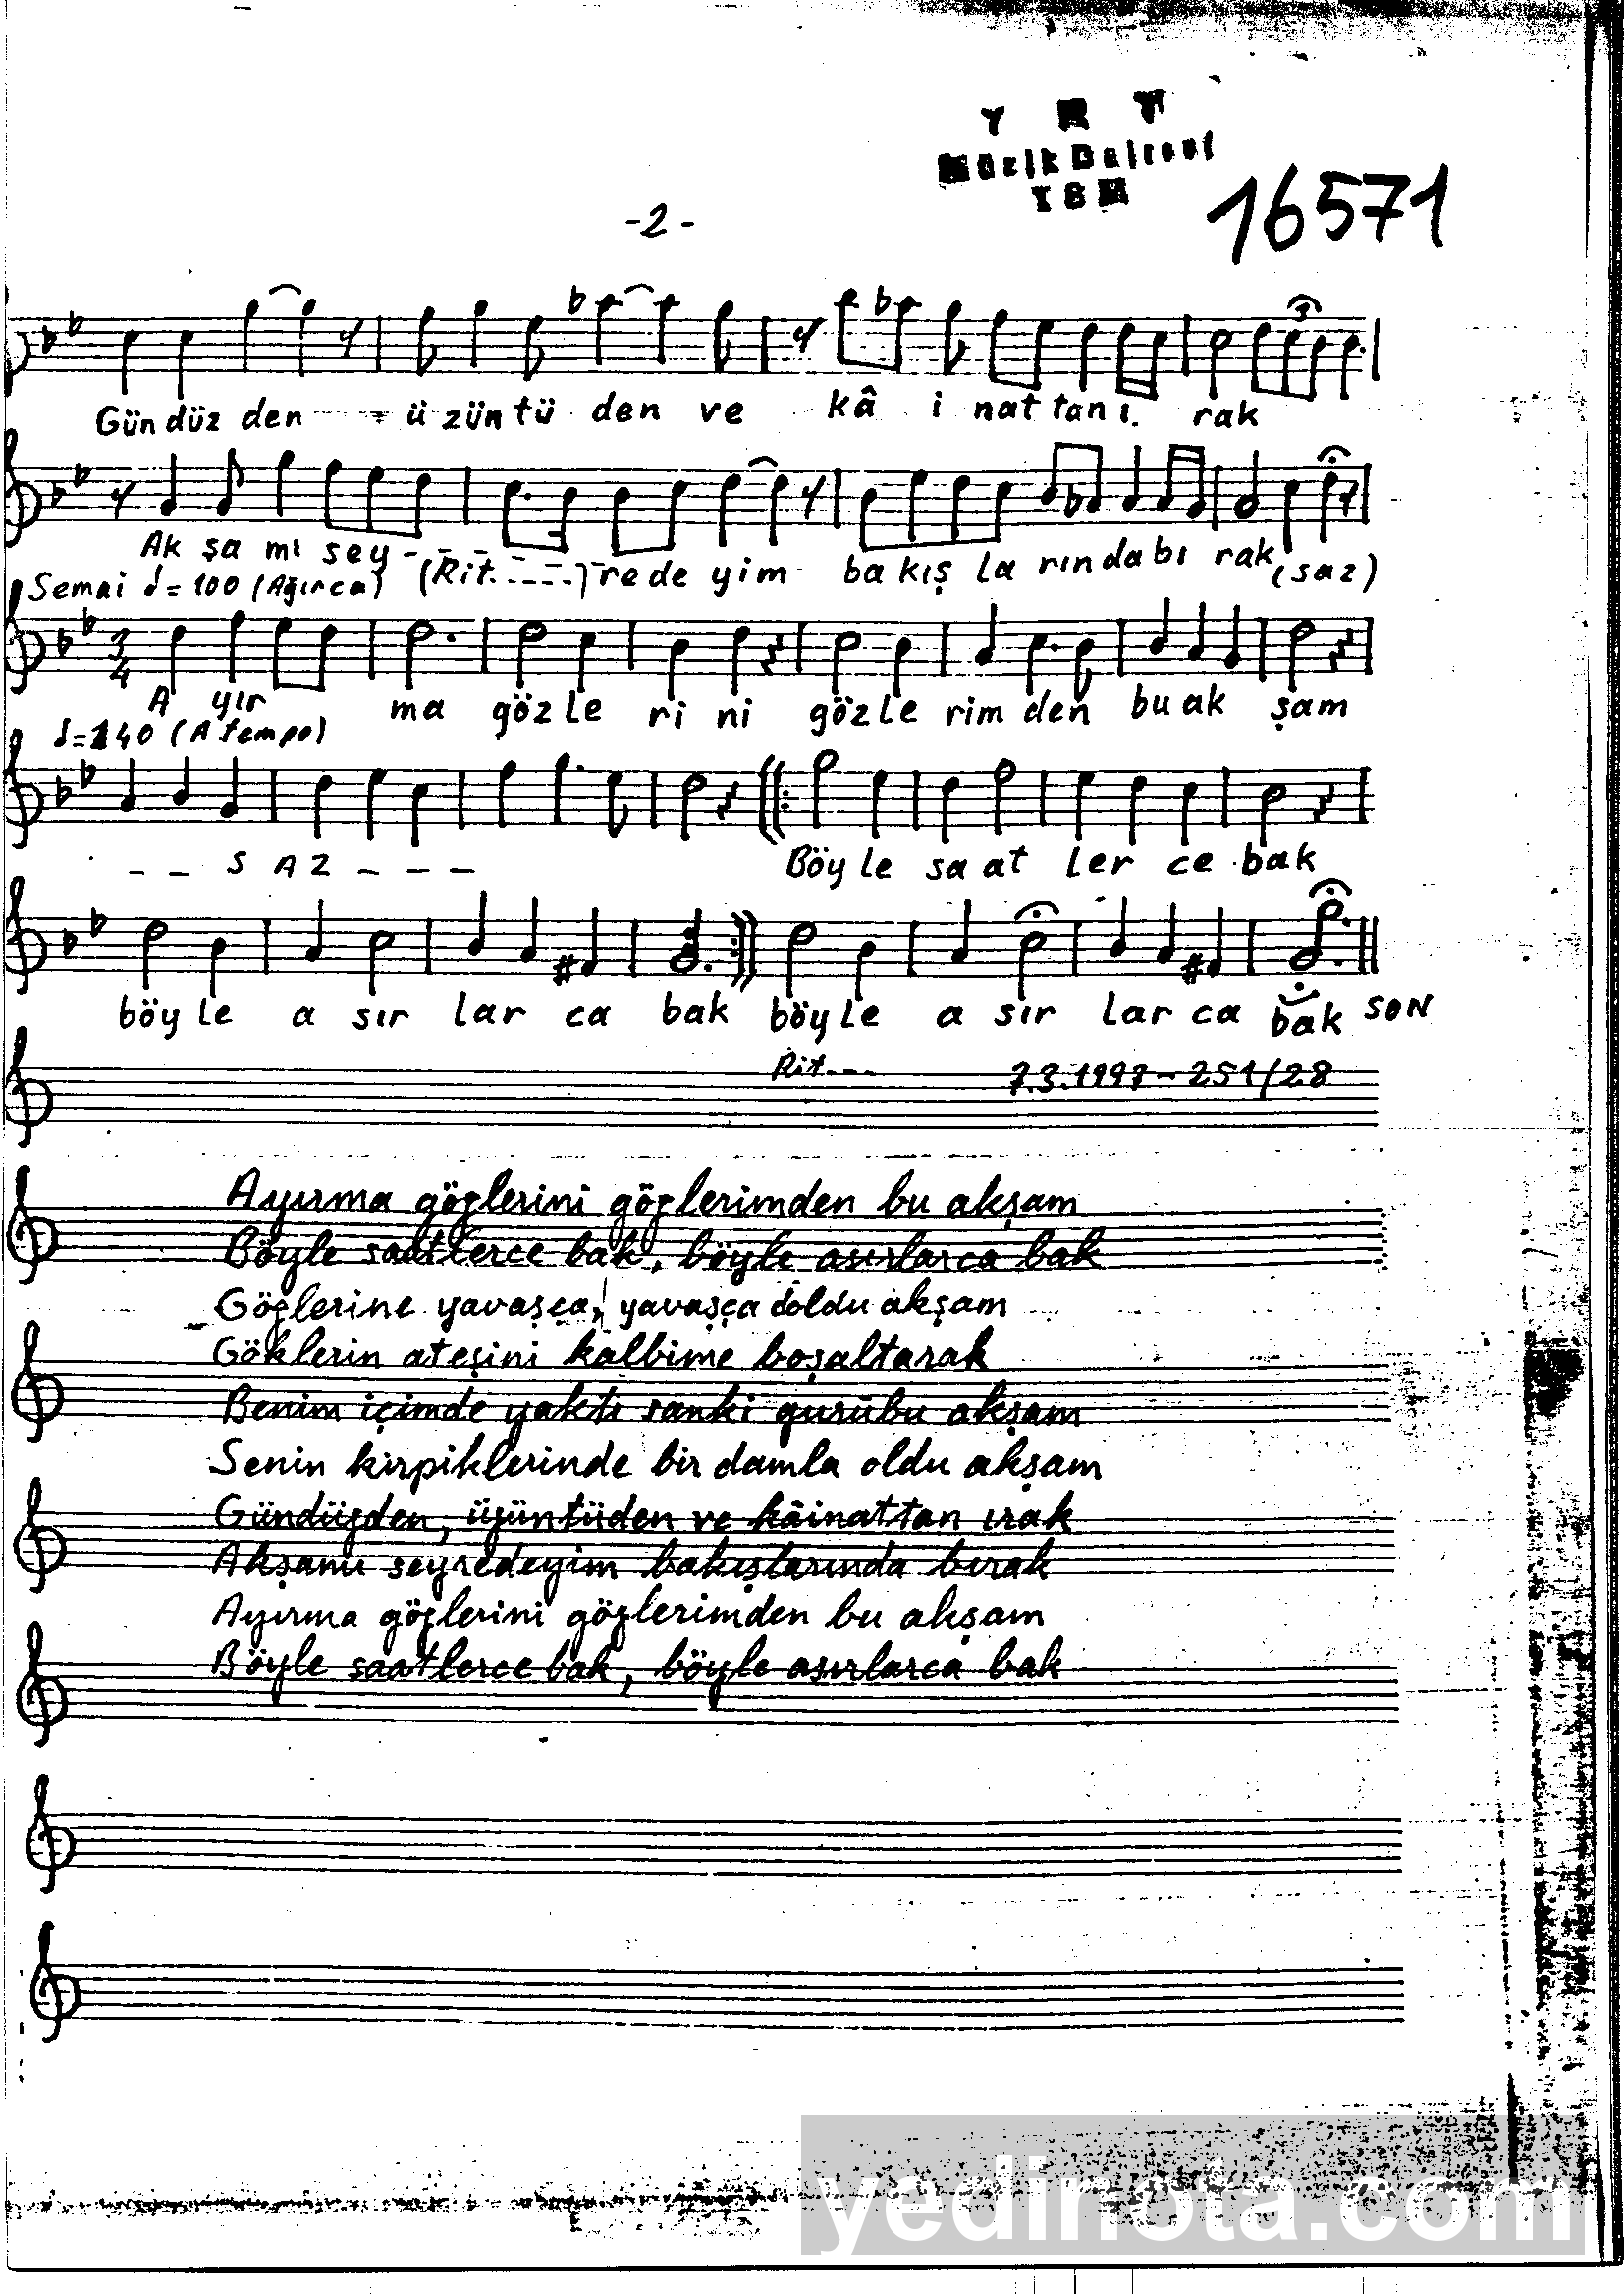 T R T
Müzik Dairesi
TSM
16571
-2-
3
Gün düz den ü zün tü den ve kâ i nat tan ı. rak
Ak şa mı sey - - - - - re de yim ba kış la rın da bı rak (saz)
Semai ♩= 100 (Ağırca) (Rit.----)
3/4
A yır ma göz le ri ni göz le rim den bu ak şam
♩=140 (A tempo)
_ _ S A Z _ _ _ Böy le sa at ler ce bak
böy le a sır lar ca bak böy le a sır lar ca bak SON
Rit--- 7.3.1997 - 251/28
Ayırma gözlerini gözlerimden bu akşam
Böyle saatlerce bak, böyle asırlarca bak
Gözlerine yavaşca, yavaşça doldu akşam
Göklerin ateşini kalbime boşaltarak
Benim içimde yaktı sanki gurûbu akşam
Senin kirpiklerinde bir damla oldu akşam
Gündüzden, üzüntüden ve kâinattan ırak
Akşamı seyredeyim bakışlarında bırak
Ayırma gözlerini gözlerimden bu akşam
Böyle saatlerce bak, böyle asırlarca bak
yedinota.com